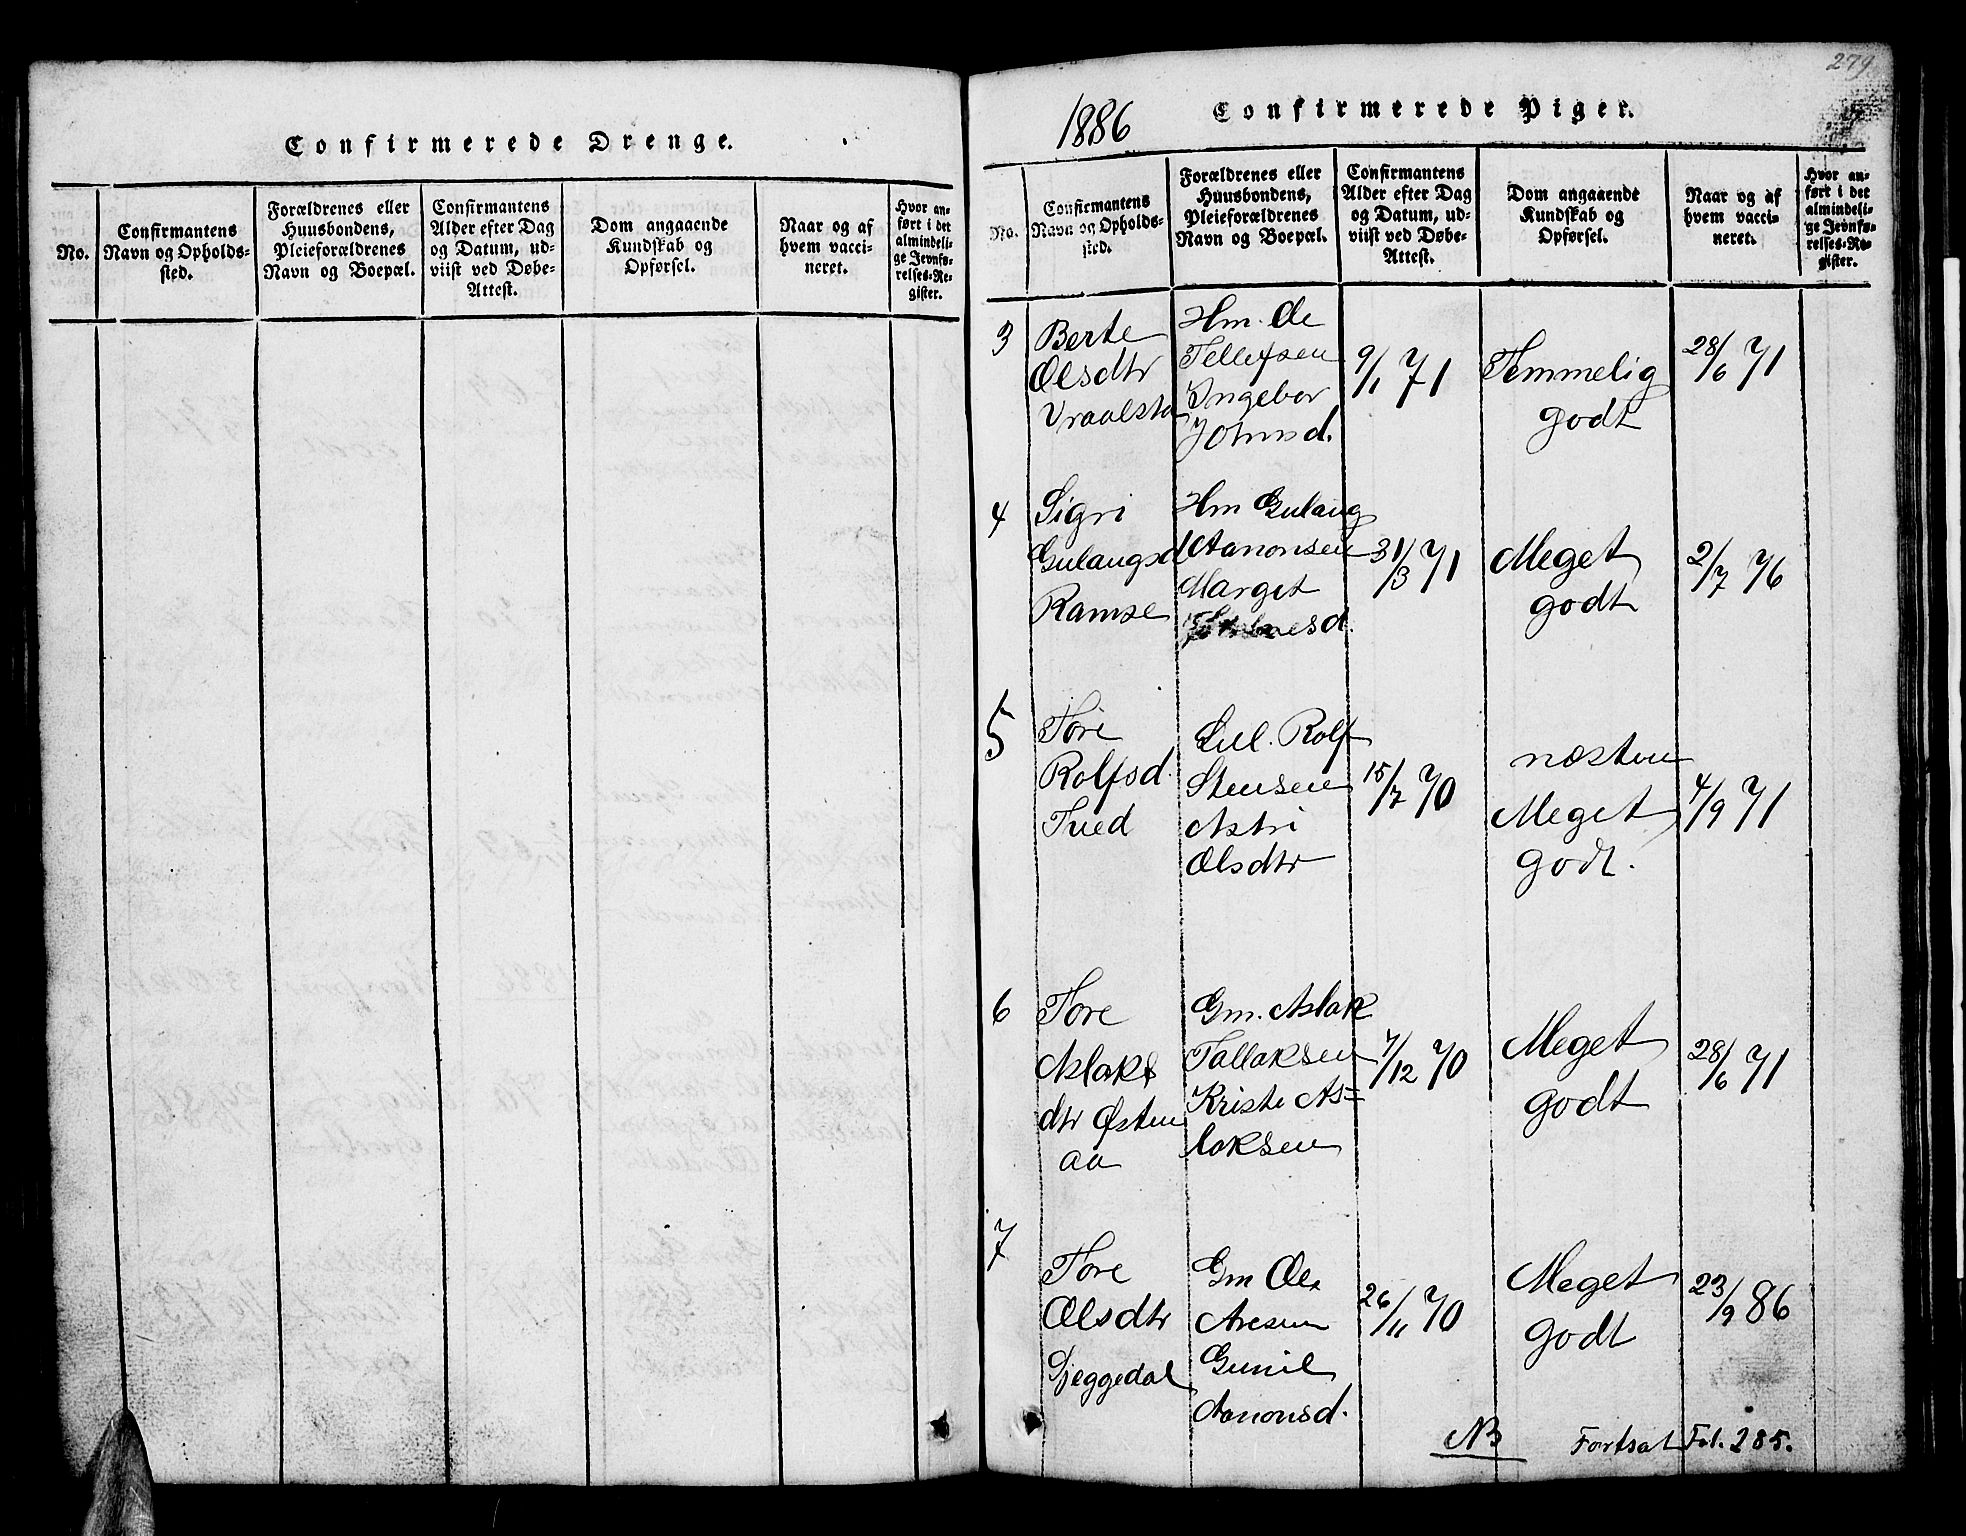 Confirmerede Drenge.
No.
Confirmantens
Navn og Opholds-
sted.
Forældrenes eller
Huusbondens,
Pleieforældrenes
Navn og Boepæl.
Confirmantens
Alder efter Dag
og Datum, ud-
viist ved Døbe-
Attest.
Dom angaaende
Kundskab og
Opførsel.
Naar og af
hvem vacci-
neret.
Hvor an-
ført i det
almindeli-
ge Jevnfø-
relses-Re-
gister.
279
1886
Confirmerede Piger.
No.
Confirmantens
Navn og Opholds-
sted.
Forældrenes eller
Huusbondens,
Pleieforældrenes
Navn og Boepæl.
Confirmantens
Alder efter Dag
og Datum, ud-
viist ved Døbe-
Attest.
Dom angaaende
Kundskab og
Opførsel.
Naar og af
hvem vacci-
neret.
Hvor an-
ført i det
almindeli-
ge Jevnfø-
relses-Re-
gister.
3
Berte
Olsdtr
Vraalsta
Hm. Ole
Tellefsen
Ingebor
Johnsd.
9/1 71
Temmelig
godt
28/6 71
4
Sigri
Gulangsd
Ramse
Hm Gulaug
Aanonsen
Marget
31/3 71
Meget
godt
2/7 76
5
Tore
Rolfsd.
Tved
Sul. Rolf
Stensen
Astri
Olsdtr
15/7 70
næsten
Meget
godt.
4/9 71
6
Tore
Aslaks
dtr Østen
aa
Gm. Aslak
Tallaksen
Kriste As=
laksen
7/12 70
Meget
godt
28/6 71
7
Tore
Olsdtr
Gjeggedal
Gm Ole
Aresen
Gunil
Aanonsd.
26/11 70
Meget
godt
23/9 86
NB Fortsat Fol. 285.